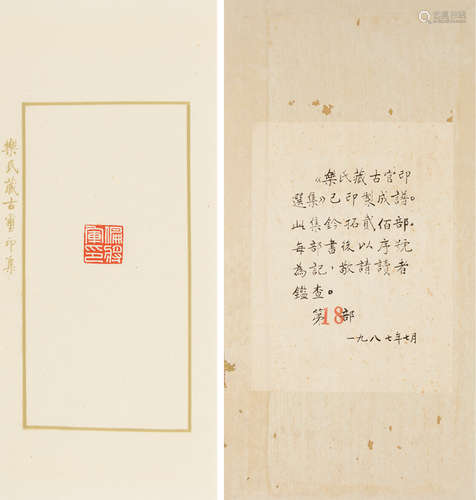 樂氏藏古璽印集
偏將
軍印
《樂氏藏古官印
選集》已印製成譜。
此集鈐拓貳佰部.
每部書後以序號
為記，敬請讀者
鑑查。
第18部
一九八七年七月